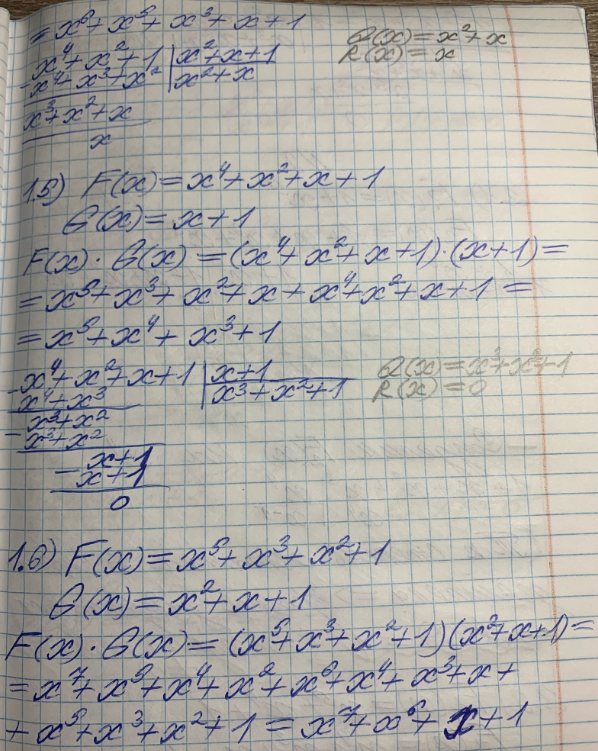 = x⁶ + x⁵ + x³ + x + 1
x⁴ + x² + 1 | x² + x + 1
Q(x) = x² + x
- x⁴ + x³ + x² | x² + x
R(x) = x
x³ + x² + x
x
1.5) F(x) = x⁴ + x² + x + 1
G(x) = x + 1
F(x) · G(x) = (x⁴ + x² + x + 1) · (x + 1) =
= x⁵ + x³ + x² + x + x⁴ + x² + x + 1 =
= x⁵ + x⁴ + x³ + 1
- x⁴ + x² + x + 1 | x + 1
Q(x) = x³ + x² + 1
x⁴ + x³ | x³ + x² + 1
R(x) = 0
- x³ + x²
x³ + x²
- x + 1
x + 1
0
1.6) F(x) = x⁵ + x³ + x² + 1
G(x) = x² + x + 1
F(x) · G(x) = (x⁵ + x³ + x² + 1)(x² + x + 1) =
= x⁷ + x⁵ + x⁴ + x² + x⁶ + x⁴ + x³ + x +
+ x⁵ + x³ + x² + 1 = x⁷ + x⁶ + x + 1